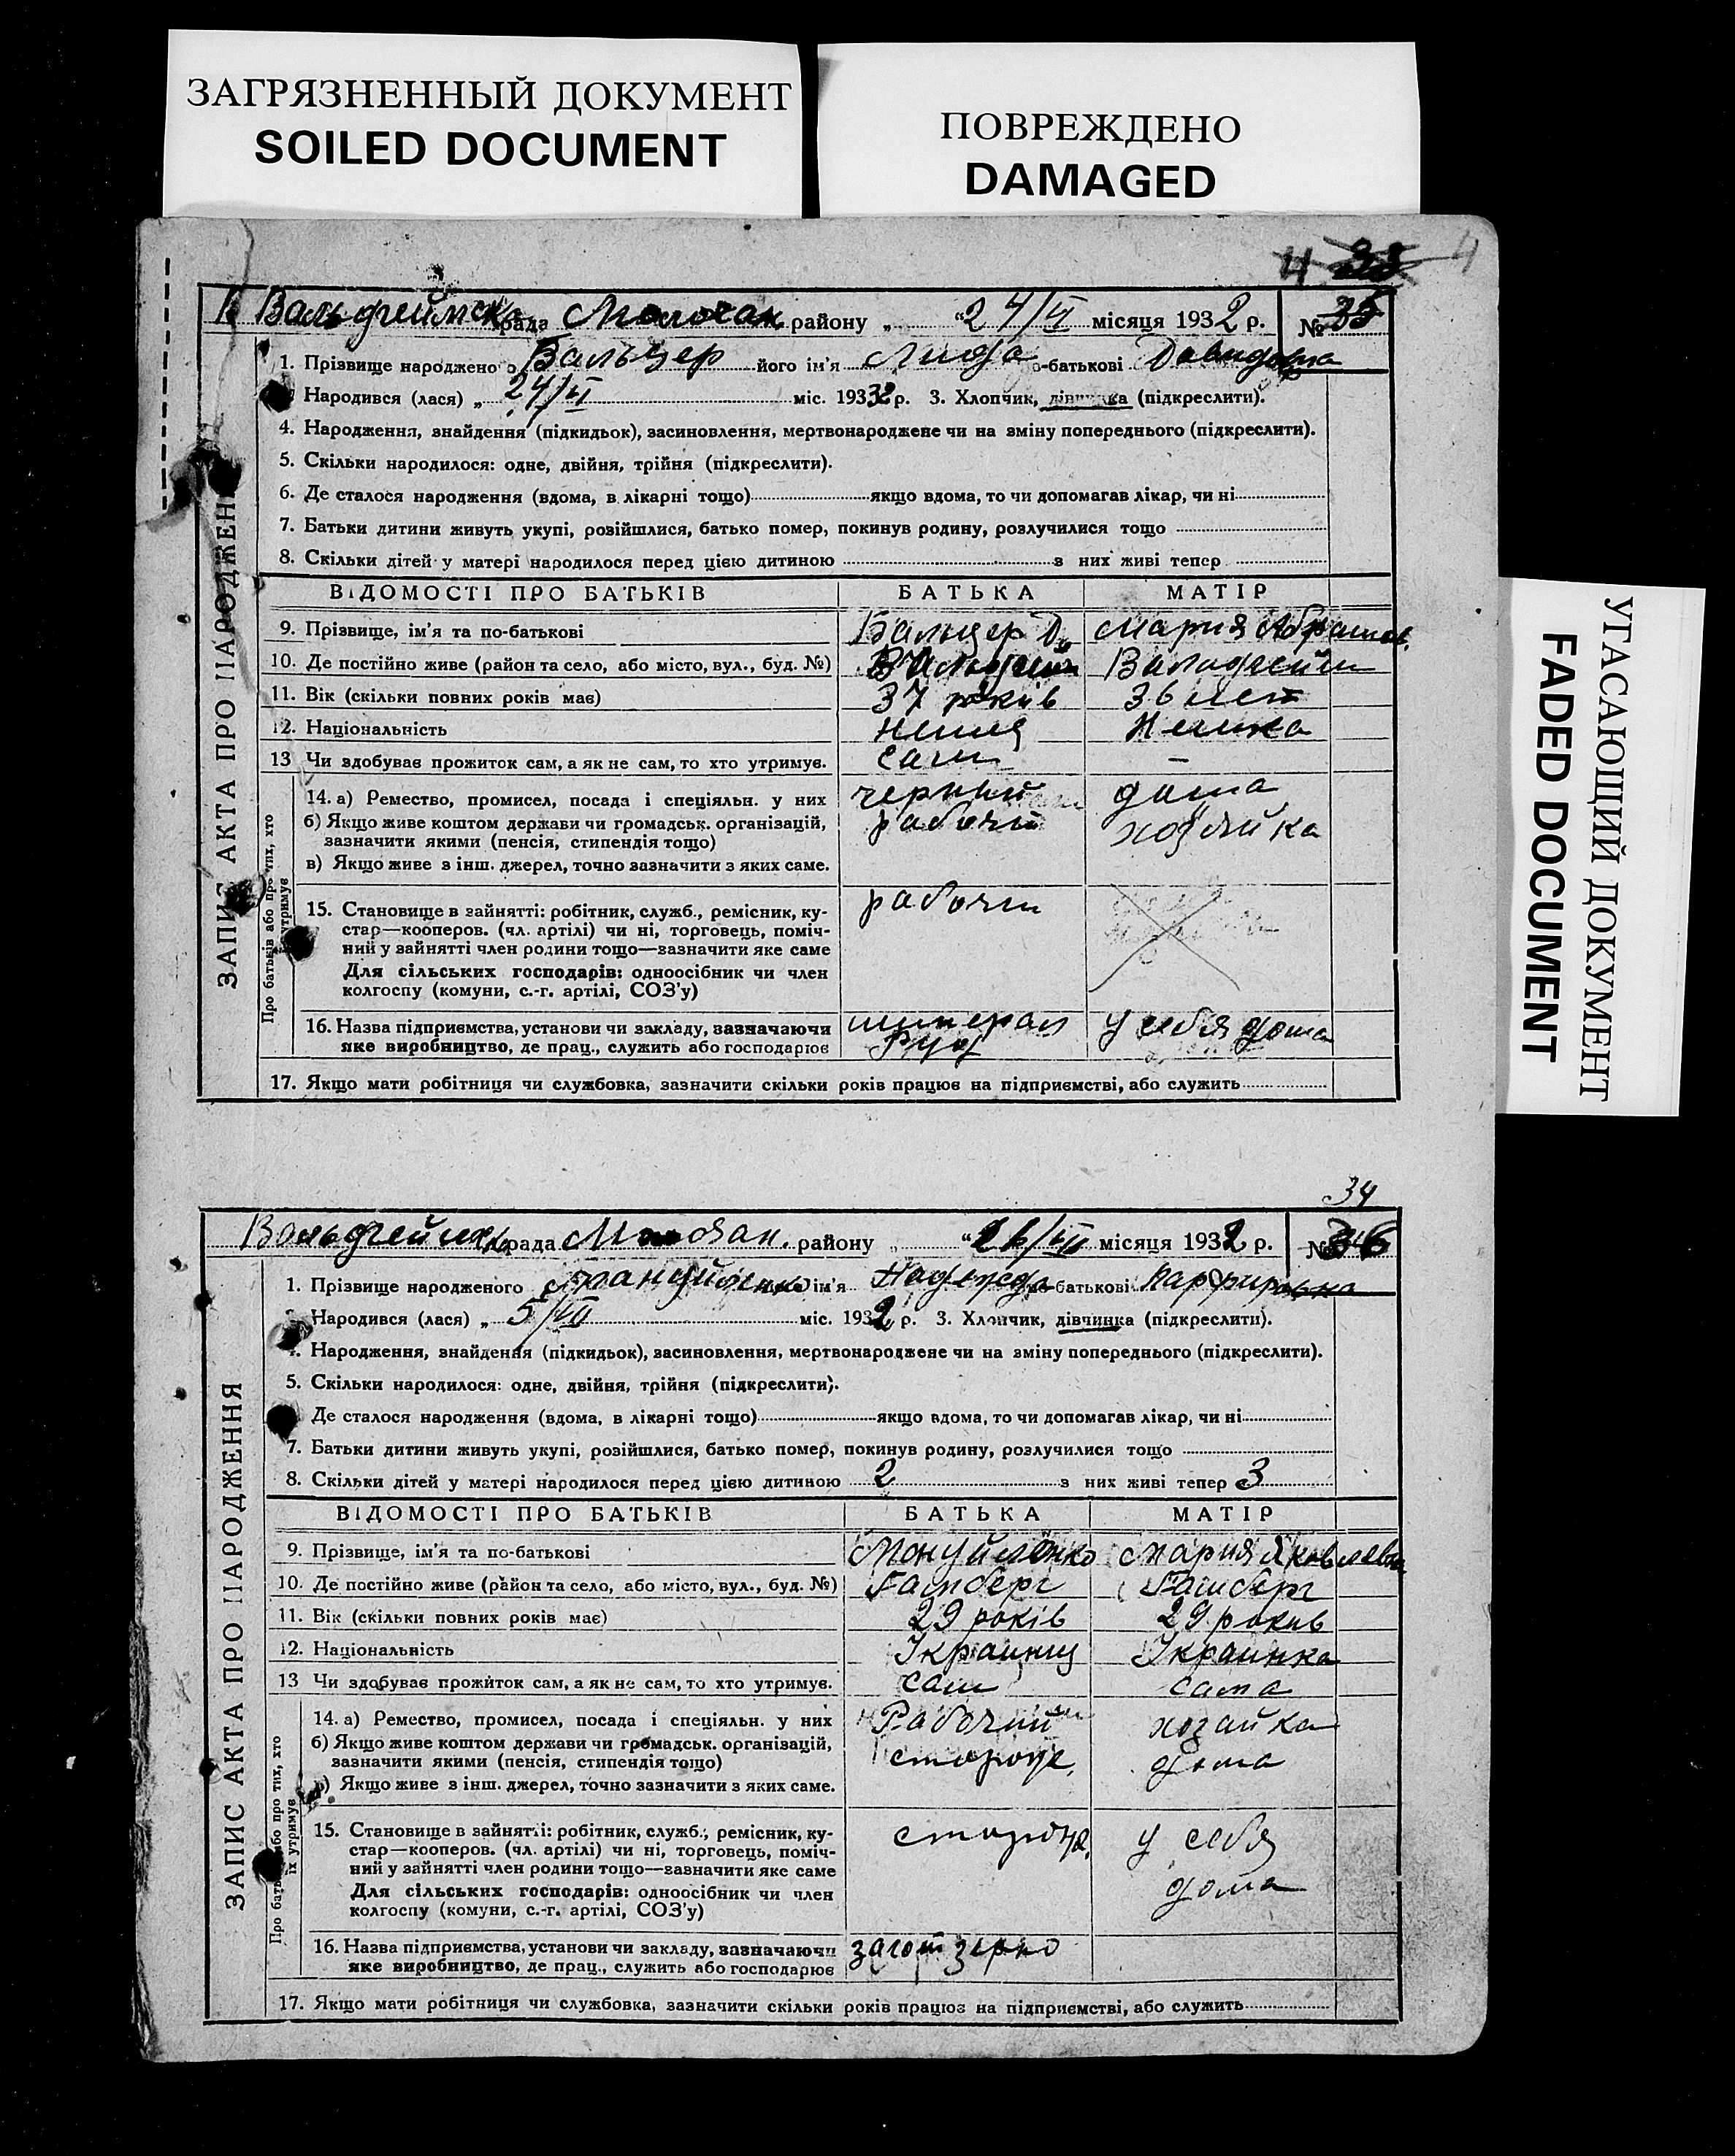 ЗАГРЯЗНЕННЫЙ ДОКУМЕНТ
SOILED DOCUMENT
ПОВРЕЖДЕНО
DAMAGED
УГАСАЮЩИЙ ДОКУМЕНТ
FADED DOCUMENT
4 33 4
Вальдгеймска рада Молочан. району „ “ 24/VI місяця 1932 р. № 35
ЗАПИС АКТА ПРО НАРОДЖЕН
1. Прізвище народжено о Вальцер його ім'я Лида о-батькові Давидовна
Народився (лася) „ 24/VI міс. 1932 р. 3. Хлопчик, дівчинка (підкреслити).
4. Народження, знайдення (підкидьок), засиновлення, мертвонароджене чи на зміну попереднього (підкреслити).
5. Скільки народилося: одне, двійня, трійня (підкреслити).
6. Де сталося народження (вдома, в лікарні тощо) якщо вдома, то чи допомагав лікар, чи ні
7. Батьки дитини живуть укупі, розійшлися, батько помер, покинув родину, розлучилися тощо
8. Скільки дітей у матері народилося перед цією дитиною з них живі тепер
ВІДОМОСТІ ПРО БАТЬКІВ БАТЬКА МАТІР
9. Прізвище, ім'я та по-батькові Вальцер Д. Мария Абрамов.
10. Де постійно живе (район та село, або місто, вул., буд. №) Вальдгейм Вальдгейм
11. Вік (скільки повних років має) 37 років 36 лет
12. Національність Немец Немка
13 Чи здобував прожиток сам, а як не сам, то хто утримує. сам —
Про батьків або про тих, хто їх утримує
14. а) Ремество, промисел, посада і спеціяльн. у них черный дома
б) Якщо живе коштом держави чи громадськ. організацій, рабочий хозяйка
зазначити якими (пенсія, стипендія тощо)
в) Якщо живе з інш. джерел, точно зазначити з яких саме.
15. Становище в зайнятті: робітник, служб., ремісник, ку- рабочий
стар—кооперов. (чл. артілі) чи ні, торговець, поміч-
ний у зайнятті член родини тощо—зазначити яке саме
Для сільських господарів: одноосібник чи член
колгоспу (комуни, с.-г. артілі, СОЗ'у)
16. Назва підприємства, установи чи закладу, зазначаючи у себя дома
яке виробництво, де прац., служить або господарює
17. Якщо мати робітниця чи службовка, зазначити скільки років працює на підприємстві, або служить
34
Вальдгеймск. рада Молочан. району „ “ 26/VII місяця 1932 р. № 36
ЗАПИС АКТА ПРО НАРОДЖЕННЯ
1. Прізвище народженого Мануйленко ім'я Надежда батькові Парфировна
Народився (лася) „ 5/VII міс. 1932 р. 3. Хлопчик, дівчинка (підкреслити).
4. Народження, знайдення (підкидьок), засиновлення, мертвонароджене чи на зміну попереднього (підкреслити).
5. Скільки народилося: одне, двійня, трійня (підкреслити).
Де сталося народження (вдома, в лікарні тощо) якщо вдома, то чи допомагав лікар, чи ні
7. Батьки дитини живуть укупі, розійшлися, батько помер, покинув родину, розлучилися тощо
8. Скільки дітей у матері народилося перед цією дитиною 2 з них живі тепер 3
ВІДОМОСТІ ПРО БАТЬКІВ БАТЬКА МАТІР
9. Прізвище, ім'я та по-батькові Мануйленко Мария Яковлевна
10. Де постійно живе (район та село, або місто, вул., буд. №) Гамберг Гамберг
11. Вік (скільки повних років має) 29 років 29 років
12. Національність Украинец Украинка
13 Чи здобував прожиток сам, а як не сам, то хто утримує. сам сама
Про батьків або про тих, хто їх утримує
14. а) Ремество, промисел, посада і спеціяльн. у них Рабочий хозайка
б) Якщо живе коштом держави чи громадськ. організацій, сторож. дома
зазначити якими (пенсія, стипендія тощо)
в) Якщо живе з інш. джерел, точно зазначити з яких саме.
15. Становище в зайнятті: робітник, служб., ремісник, ку- сторож. у себя
стар—кооперов. (чл. артілі) чи ні, торговець, поміч-
ний у зайнятті член родини тощо—зазначити яке саме дома
Для сільських господарів: одноосібник чи член
колгоспу (комуни, с.-г. артілі, СОЗ'у)
16. Назва підприємства, установи чи закладу, зазначаючи заготзерно
яке виробництво, де прац., служить або господарює
17. Якщо мати робітниця чи службовка, зазначити скільки років працює на підприємстві, або служить